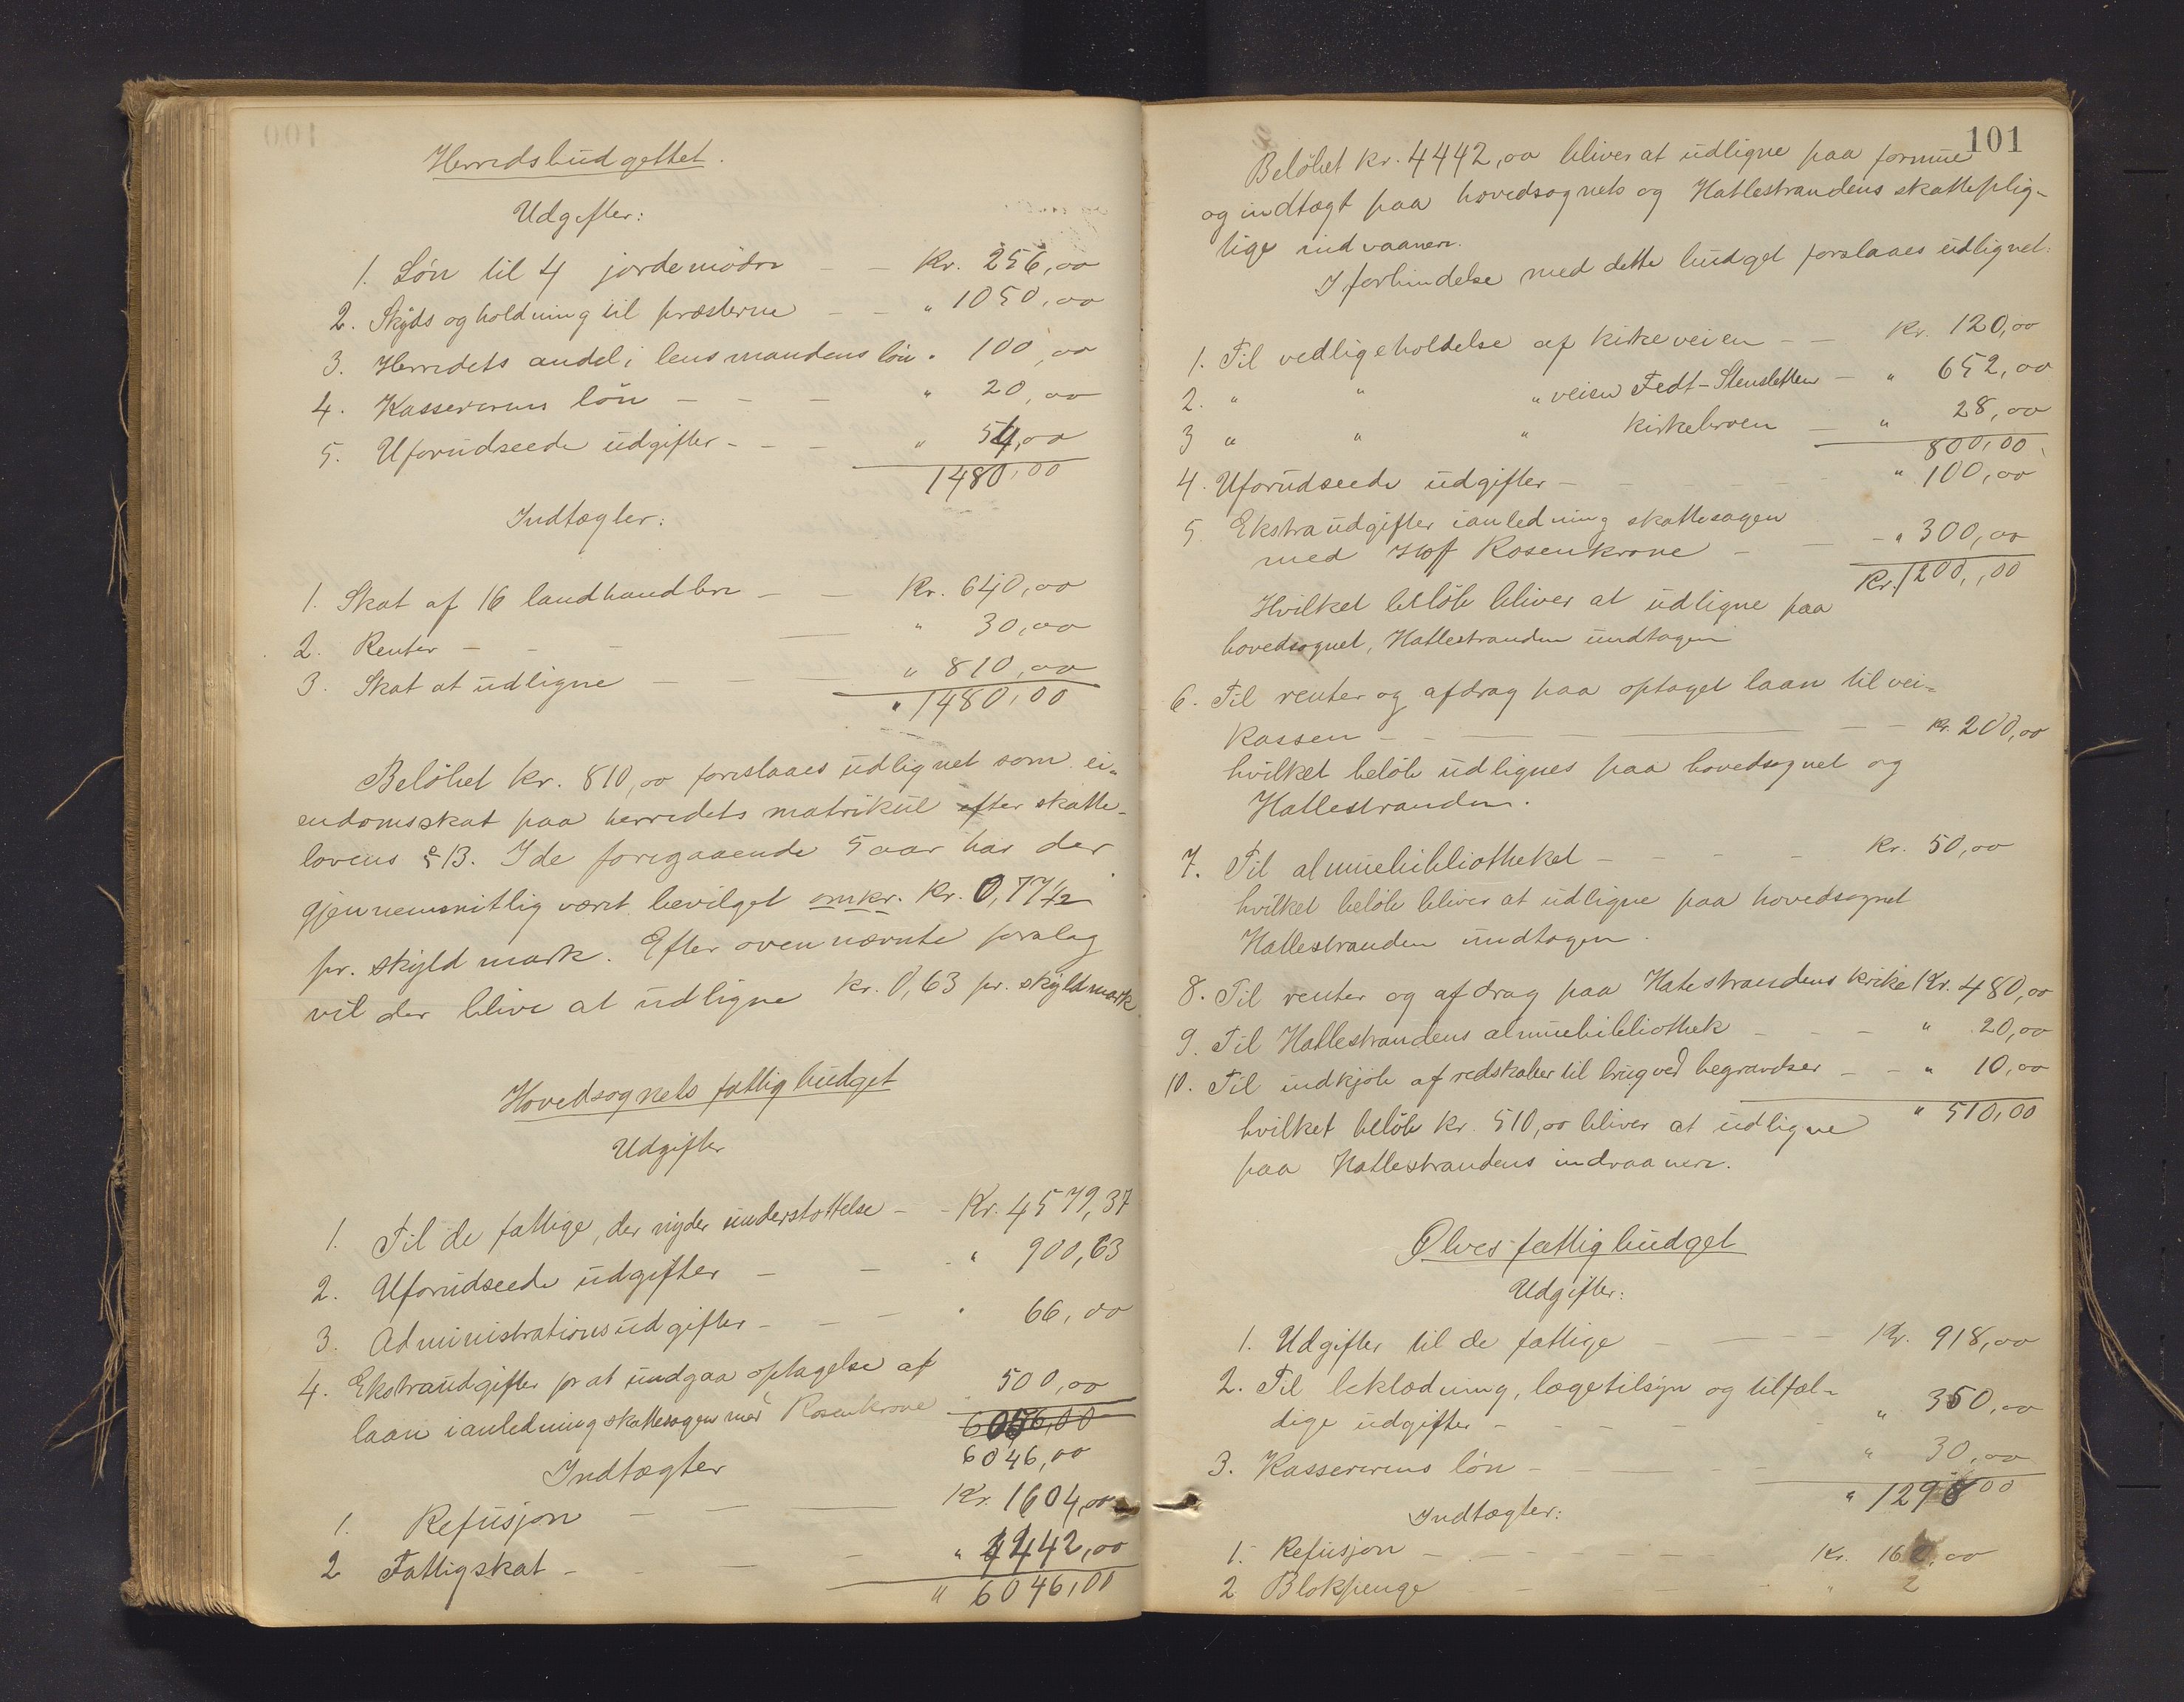 Herredsbudgettet.
Udgifter:
1. Løn til 4 jordemødre – – Kr. 256,00
2. Skyds og holdning til præsterne – – " 1050,00
3. Herredets andel i lensmandens løn " 100,00
4. Kassererens løn – – – " 20,00
5. Uforudseede udgifter – – – " 54,00
1480,00
Indtægter:
1. Skat af 16 landhandlere – – Kr. 640,00
2. Renter – – – " 30,00
3. Skat at udligne – – – " 810,00
" 1480,00
Beløbet kr. 810,00 foreslaaes udlignet som ei-
endomsskat paa herredets matrikul efter skatte-
lovens § 13. I de foregaaende 5 aar har der
gjennemsnitlig været bevilget omkr. Kr. 0,77½
pr. skyldmark. Efter ovennævnte forslag
vil der blive at udligne kr. 0,63 pr. skyldmark.
Hovedsognets fattigbudget
Udgifter
1. Til de fattige, der nyder understøttelse – – Kr. 4579,37
2. Uforudseede udgifter – – – " 900,63
3. Administrationsudgifter – – – " 66,00
4. Ekstraudgifter for at undgaa optagelse af
laan i anledning skattesagen med Rosenkrone 500,00
6056,00
6046,00
Indtægter
1. Refusjon – – – Kr. 1604,00
2 Fattigskat – – – " 4442,00
" 6046,00
101
Beløbet Kr. 4442,00 bliver at udligne paa formue
og indtægt paa hovedsognets og Hatlestrandens skatteplig-
tige indvaanere.
I forbindelse med dette budget forslaaes udlignet:
1. Til vedligeholdelse af kirkeveien – – Kr. 120,00
2. " " " veien Fedt-Stensletten – " 652,00
3 " " " Kirkebroen – " 28,00
800,00
4. Uforudseede udgifter – – – " 100,00
5. Ekstraudgifter i anledning skattesagen
med Hoff Rosenkrone – – – " 300,00
Kr. 1200,00
Hvilket beløb bliver at udligne paa
hovedsognet, Hatlestranden undtagen
6. Til renter og afdrag paa optaget laan til vei-
kassen – – – – – Kr. 200,00
hvilket beløb udlignes paa hovedsognet og
Hatlestranden.
7. Til almuebibliotheket – – – – Kr. 50,00
hvilket beløb bliver at udligne paa hovedsognet
Hatlestranden undtagen.
8. Til renter og afdrag paa Hatestrandens kirke Kr. 480,00
9. Til Hatlestrandens almuebibliothek – – – " 20,00
10. Til indkjøb af redskaber til brug ved begravelser – – " 10,00
" 510,00
hvilket beløb Kr. 510,00 bliver at udligne
paa Hatlestrandens indvaanere.
Ølves fattigbudget
Udgifter:
1. Udgifter til de fattige – – – – Kr. 918,00
2. Til beklædning, lægetilsyn og tilfæl-
dige udgifter – – – – " 350,00
3. Kassererens løn – – – – " 30,00
" 1298,00
Indtægter:
1. Refusjon – – – – – Kr. 160,00
2 Blokpenge – – " 2